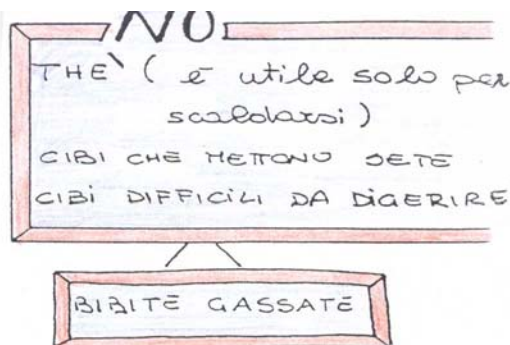 NO
THE` ( è utile solo per
scaldarsi )
CIBI CHE METTONO SETE
CIBI DIFFICILI DA DIGERIRE
BIBITE GASSATE